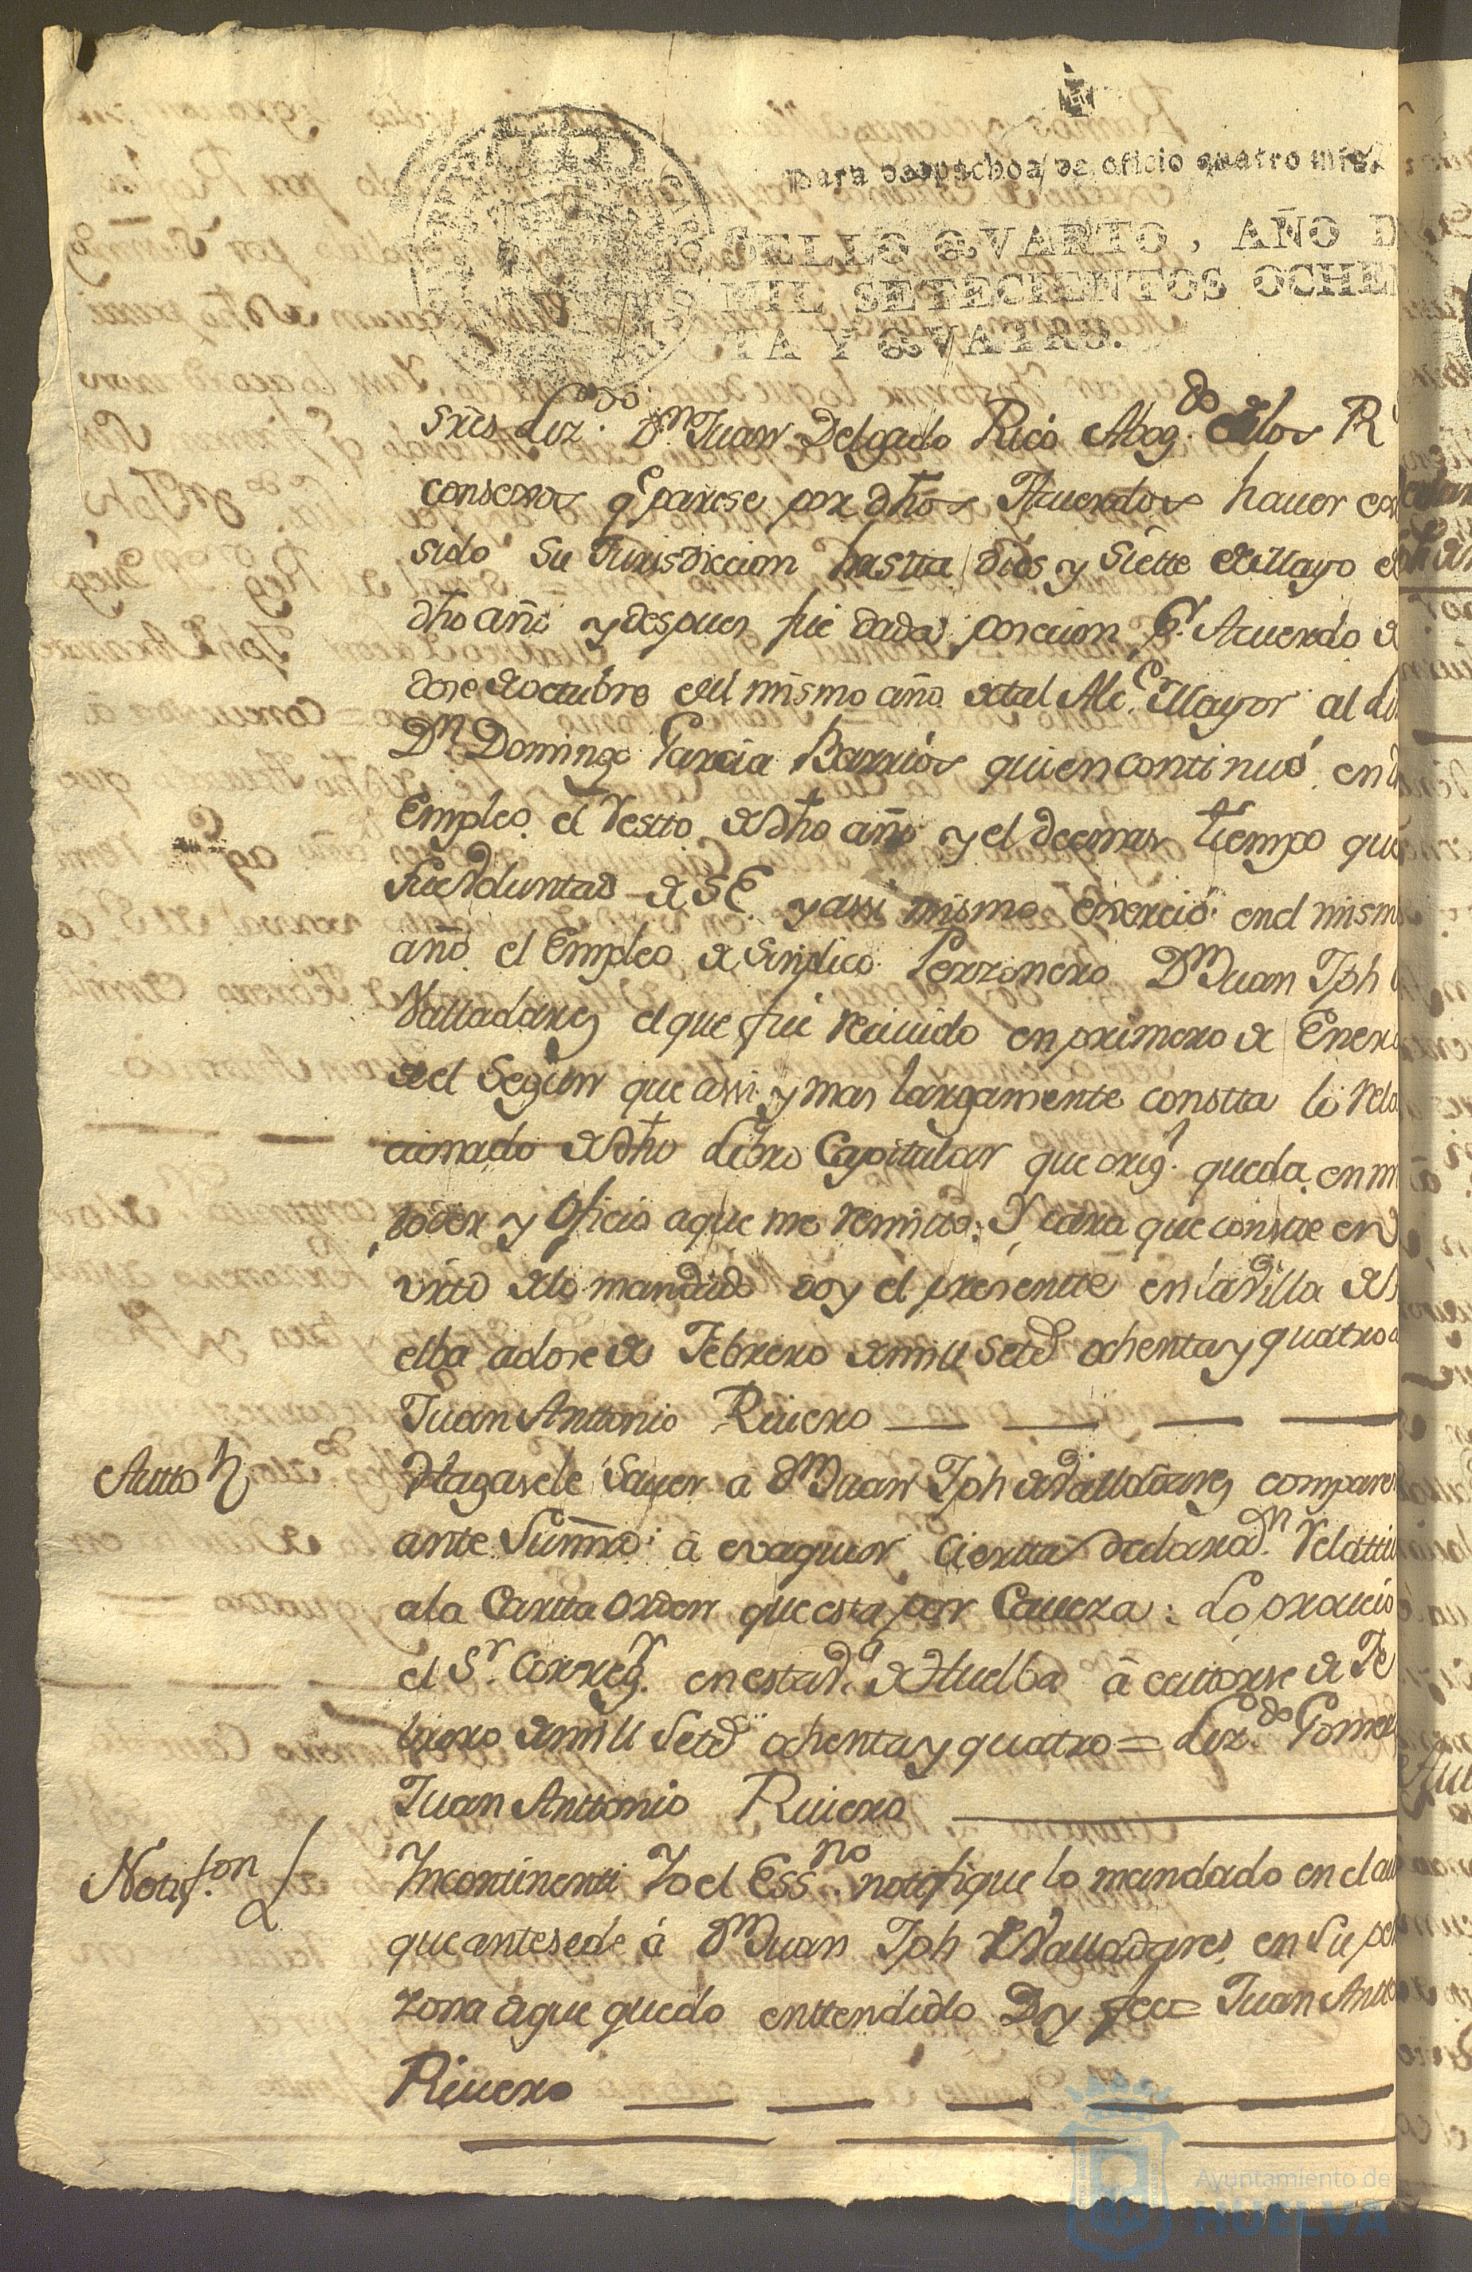 para despachos de oficio quatro mrs.
SELLO QVARTO, AÑO D
MIL SETECIENTOS OCHEN
TA Y QVATRO.
sres Liz.do Dn. Juan Delgado Rico Abog.do de los R
consexos q.e parese por dhos Acuerdos hauer exer
sido su Jurisdiccion hastta dies y Siette de Mayo de
dho año y despues fue dada posecion p.r Acuerdo de
dose de octubre del mismo año de tal Alc.e Mayor al Li
Dn Domingo Garcia Barrios quien continuó en
Empleo el Restto de dho año y el deemas tiempo que
fue Voluntad de S E. y assi mismo Exerció en el mism
año el Empleo de Sindico Perzonero Dn Juan Jph
Valladares el que fue Reciuido en primero de Enero
de el Segun que assi y mas largamente constta lo Rela
cionado de dho Libro Capitular que orig.l queda en m
poder y Oficio a que me Remito: Y para que conste en
virtd de lo mandado doy el presentte en la Villa de H
elba a dose de Febrero de mill Setes ochenta y quatro a
Juan Anttonio Riuero
Autto
Hagasele Sauer a Dn Juan Jph de Valladares compares
ante Sumrd. á evaquar cierta declaraz.n Relattiu
a la Cartta orden que esta por Caueza: Lo proueió
el S.r Correg.r en esta v.a de Huelba á cattorse de Fe
brero de mill Setes ochenta y quatro = Liz.do Gomez
Juan Anttonio Riuero
Notif.on
Incontinenti Yo el Ess.no notifique lo mandado en el au
que antesede á Dn Juan Jph de Valladares en su per
zona de que quedo enttendido Doy fee = Juan Antto
Riuero
Ayuntamiento de
HUELVA